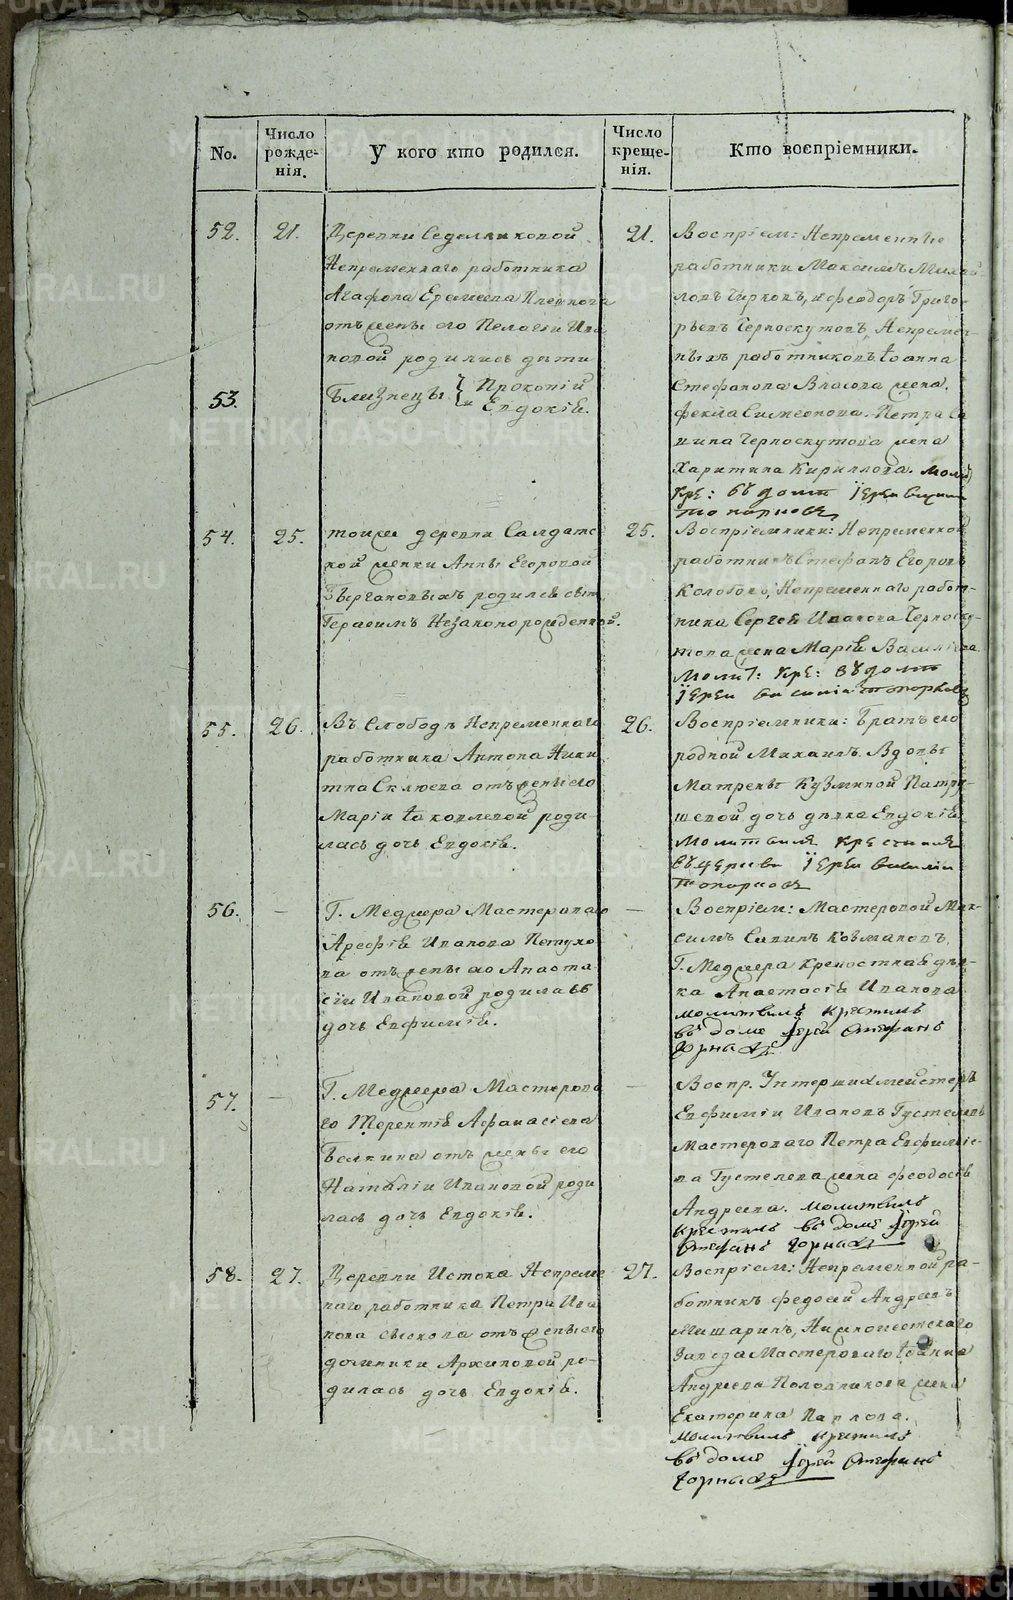 No.
Число рожде-
нія.
У кого кто родился.
Число креще-
нія.
Кто воспріемники.
52.
21.
Деревни Седельниковой
Непременнаго работника
Агафона Еремеева
отъ жены его Пелагеи Ива
новой родились дѣти
53.
близнецы { Прокопій
и Евдокія.
21.
Воспріем: Непременные
работники Максимъ Михай-
ловъ и Феодоръ Григо-
рьевъ Черноскутовъ, Непремен-
ныхъ работниковъ Іоанна
Стефанова Власова жена
Фекла Симеонова. Петра Са
вина Черноскутова жена
Харитина Кириллова. Моли
Кре: въ доми Іереи Василіи
топорковъ
54.
25.
тоиже деревни Салдатс
кой женки Анны Егоровой
родился сынъ
Герасимъ Незаконорожденной.
25.
Воспріемники: Непременной
работникъ Стефанъ Егоровъ
Колобовъ, Непременнаго работ-
ника Сергея Иванова Черноску-
това жена Марія Василіева
Моли: Кре: въ доми
Іереи Василіи топорковъ
55.
26.
Въ Слободѣ Непременнаго
работника Антона Ники
тина отъ жены его
Маріи Іаковлевой роди-
лась дочь Евдокія.
26.
Воспріемники: Братъ его
родной Михаилъ. Вдовы
Матрены Кузминой Патру-
шевой дочь дѣвка Евдокія
Молитвилъ Крестилъ
въ церкви Іереи Василіи
топорковъ
56.
—
Г. Меджера Мастероваго
Арефія Иванова Петухо
ва отъ жены его Анаста
сіи Ивановой родилась
дочь Евфимія.
—
Воспріем: Мастеровой Мак-
симъ Савинъ
Г. Меджера крепостная дѣв-
ка Анастасія Иванова
молитвилъ крестилъ
въ доме Іерей Стефанъ
Горныхъ
57.
—
Г. Меджера Мастерова
го Терентія Афанасіева
Белкина отъ жены его
Наталіи Ивановой роди
лась дочь Евдокія.
—
Воспр. Унтершихмейстеръ
Евфимій Ивановъ Густелевъ
Мастероваго Петра Евфиміе-
ва Густелева жена Феодосія
Андреева. молитвилъ
крестилъ въ доме Іерей
Стефанъ Горныхъ
58.
27.
Деревни Истока Непреме
наго работника Петра Ива
нова отъ жены его
Домники Архиповой ро-
дилась дочь Евдокія.
27.
Воспріем: Непременной ра-
ботникъ Федосей Андреевъ
Мишаринъ, Нижноистскаго
Завода Мастероваго Іоанна
Андреева Половникова жена
Екатерина Павлова.
молитвилъ крестилъ
въ доме Іерей Стефанъ
Горныхъ
METRIKI.GASO-URAL.RU